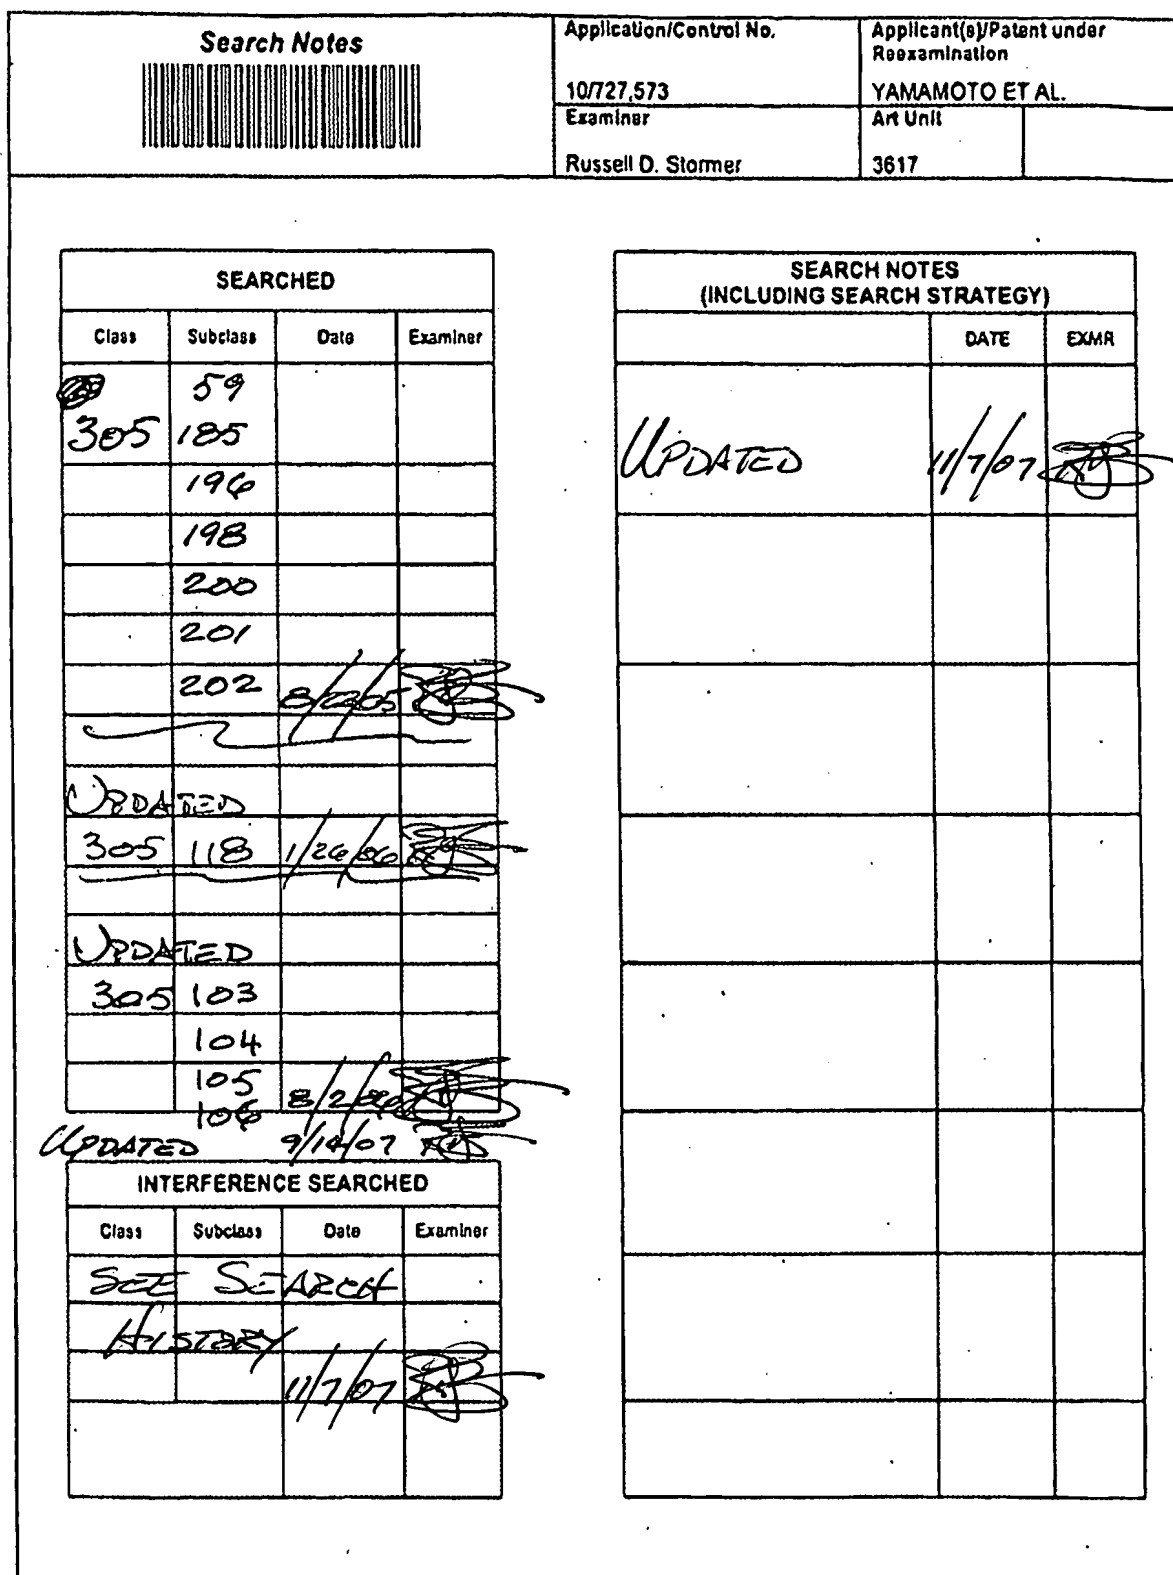 Search Notes
Application/Control No.
Applicant(s)/Patent under
Reexamination
10/727,573
YAMAMOTO ET AL.
Examiner
Art Unit
Russell D. Stormer
3617
SEARCHED
Class Subclass Date Examiner
59
305 185
196
198
200
201
202 8/22/05
UPDATED
305 118 1/26/06
UPDATED
305 103
104
105
106 8/2/06
UPDATED 9/14/07
INTERFERENCE SEARCHED
Class Subclass Date Examiner
SEE SEARCH
HISTORY
11/7/07
SEARCH NOTES
(INCLUDING SEARCH STRATEGY)
DATE EXMR
UPDATED 11/7/07